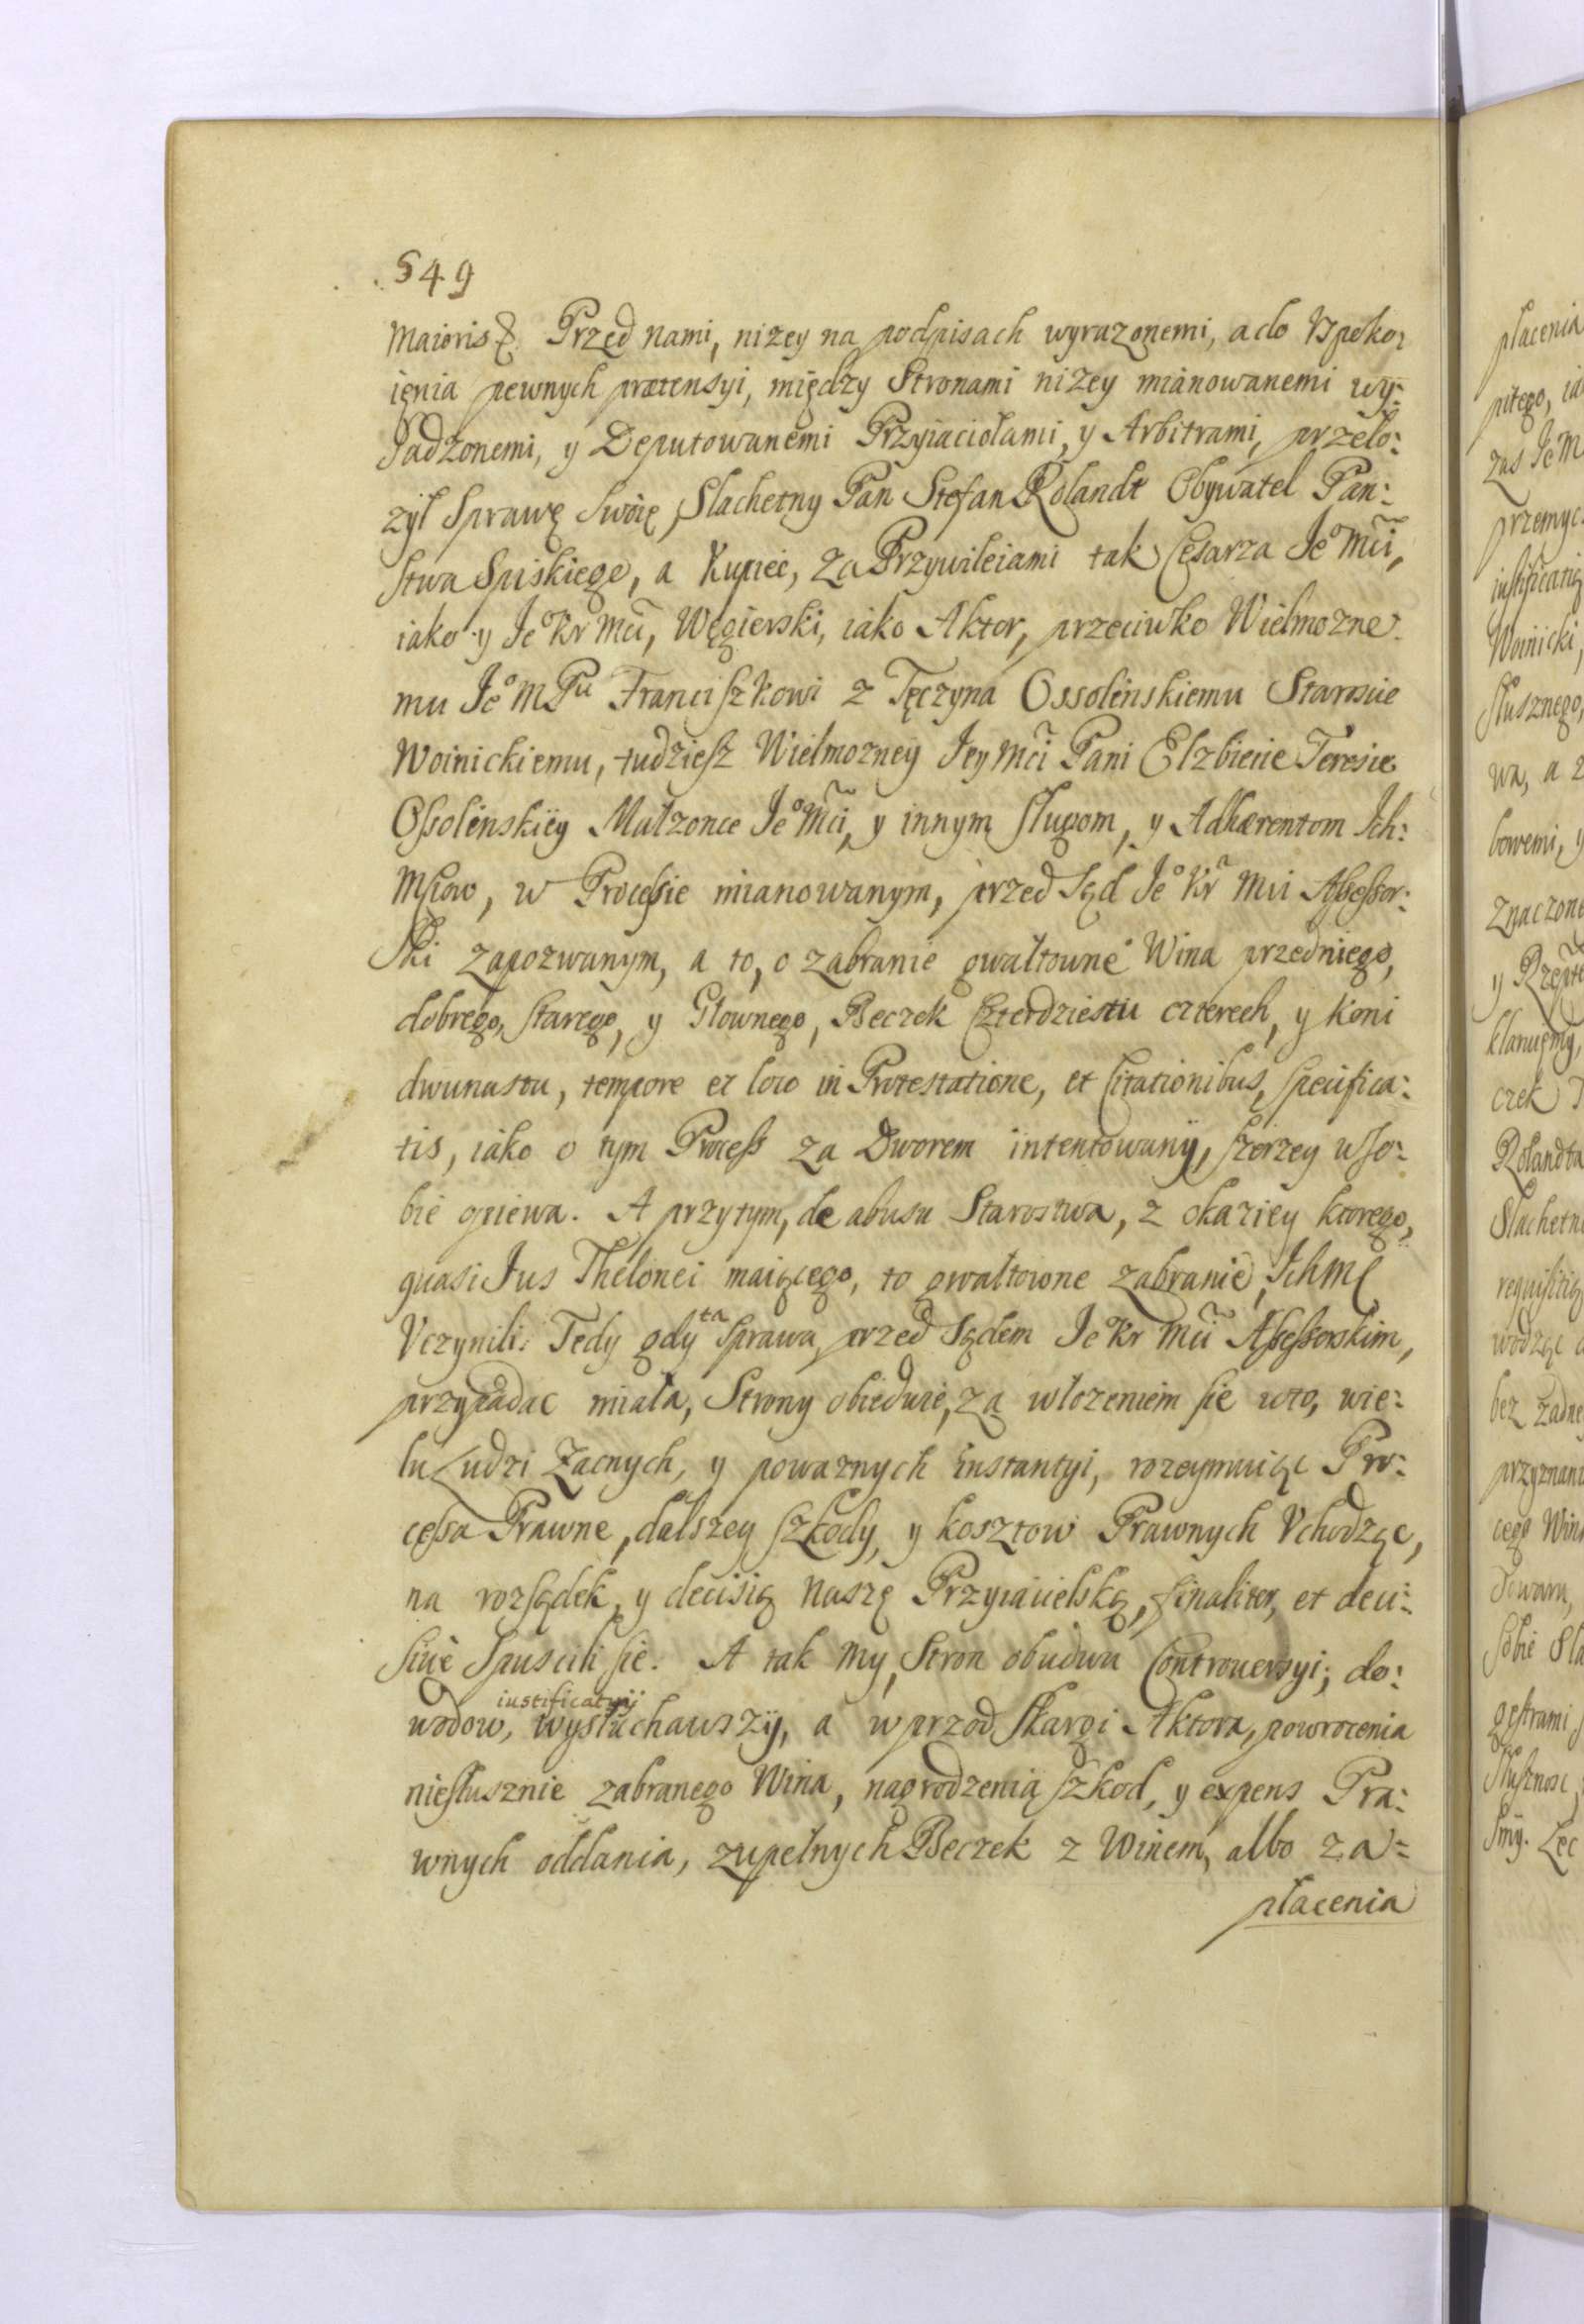 549
Maioris Przed nami, nizey na podpisach wyrazonemi, a do Vspoko:
ięnia pewnych prætensyi, między Stronami nizey mianowanemi wy:
sadzonemi, y Deputowanemi Przyiaciołami, y Arbitrami, przeło:
zył Sprawę Swoię, Slachetny Pan Stefan Rolandt Obywatel Pan:
stwa Spiskiego, a Kupiec, za Przywileiami tak Cesarza Je͠o Mci,
iako y Je͠o Kr Mci, Węgierski, iako Aktor, przeciwko Wielmozne:
mu Je͠o M Pu Franciszkowi z Tęczyna Ossolinskiemu Staroscie
Woinickiemu, tudziesz Wielmozney Jey Mci Pani Elzbiecie Teresie
Ossolinskiey Małzonce Je͠o Mci, y innym sługom, y Adhærentom Ich:
Msciow, w Processie mianowanym, przed Sąd Je͠o Kr Mci Assessor:
ski zapozwanym, a to, o zabranie gwałtowne Wina przedniego,
dobrego, starego, y Głownego, Beczek Czterdziestu czterech, y koni
dwunastu, tempore et loco in Protestatione, et Citationibus, specifica:
tis, iako o tym Process za Dworem intentowany, szerzey w so:
bie opiewa. A przytym, de abusu Starostwa, z okaziey ktorego,
quasi Jus Thelonei maiącego, to gwałtowne zabranie, Ichmc
Vczynili: Tedy gdy ta Sprawa, przed Sądem Je Kr Mci Assessorskim,
przypadac miała, Strony obiedwie, za włozeniem sie w to, wie:
lu Ludzi Zacnych, y powaznych instantyi, rozeymuiąc Pro:
cessa Prawne, dalszey szkody, y kosztow Prawnych Vchodząc,
na rozsądek, y decisią naszę Przyiacielską, finaliter, et deci:
siue spuscili sie. A tak my, Stron obudwu Controuersyi, do:
wodow, iustificatyij wysłuchawszy, a wprzod Skargi Aktora, powrocenia
niesłusznie zabranego Wina, nagrodzenia szkod, y expens Pra:
wnych oddania, zupełnych Beczek z Winem, albo za:
płacenia
płacenia
pitego, ia
zas Je M
przemyc
iustificatią
Woinicki,
słusznego,
wa, a z
bowemi, y
znaczone
klaruiemy,
czek
Rolandta
Slachetn
requisitią
wodząc
bez zadne
przyznani
cego Wina
towaru,
sobie Sla
gestrami
słusznosc
smy. Lec